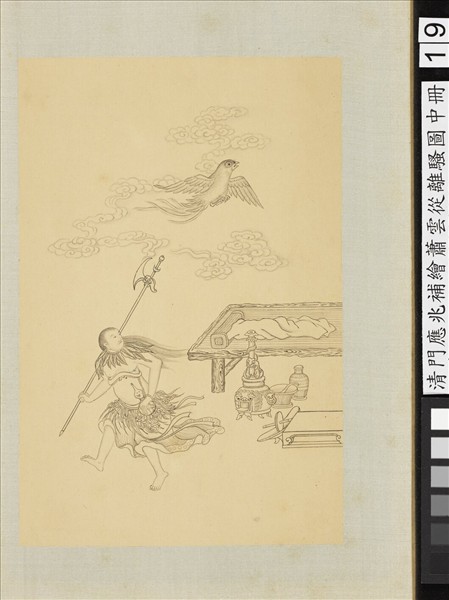 19
清門應兆補繪蕭雲從離騷圖中冊